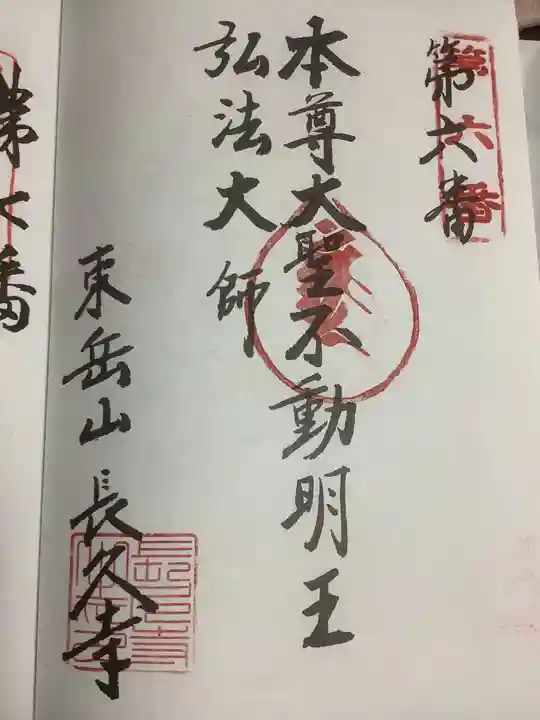 第六番
第六番
本尊大聖不動明王
弘法大師
東岳山長久寺
第七番